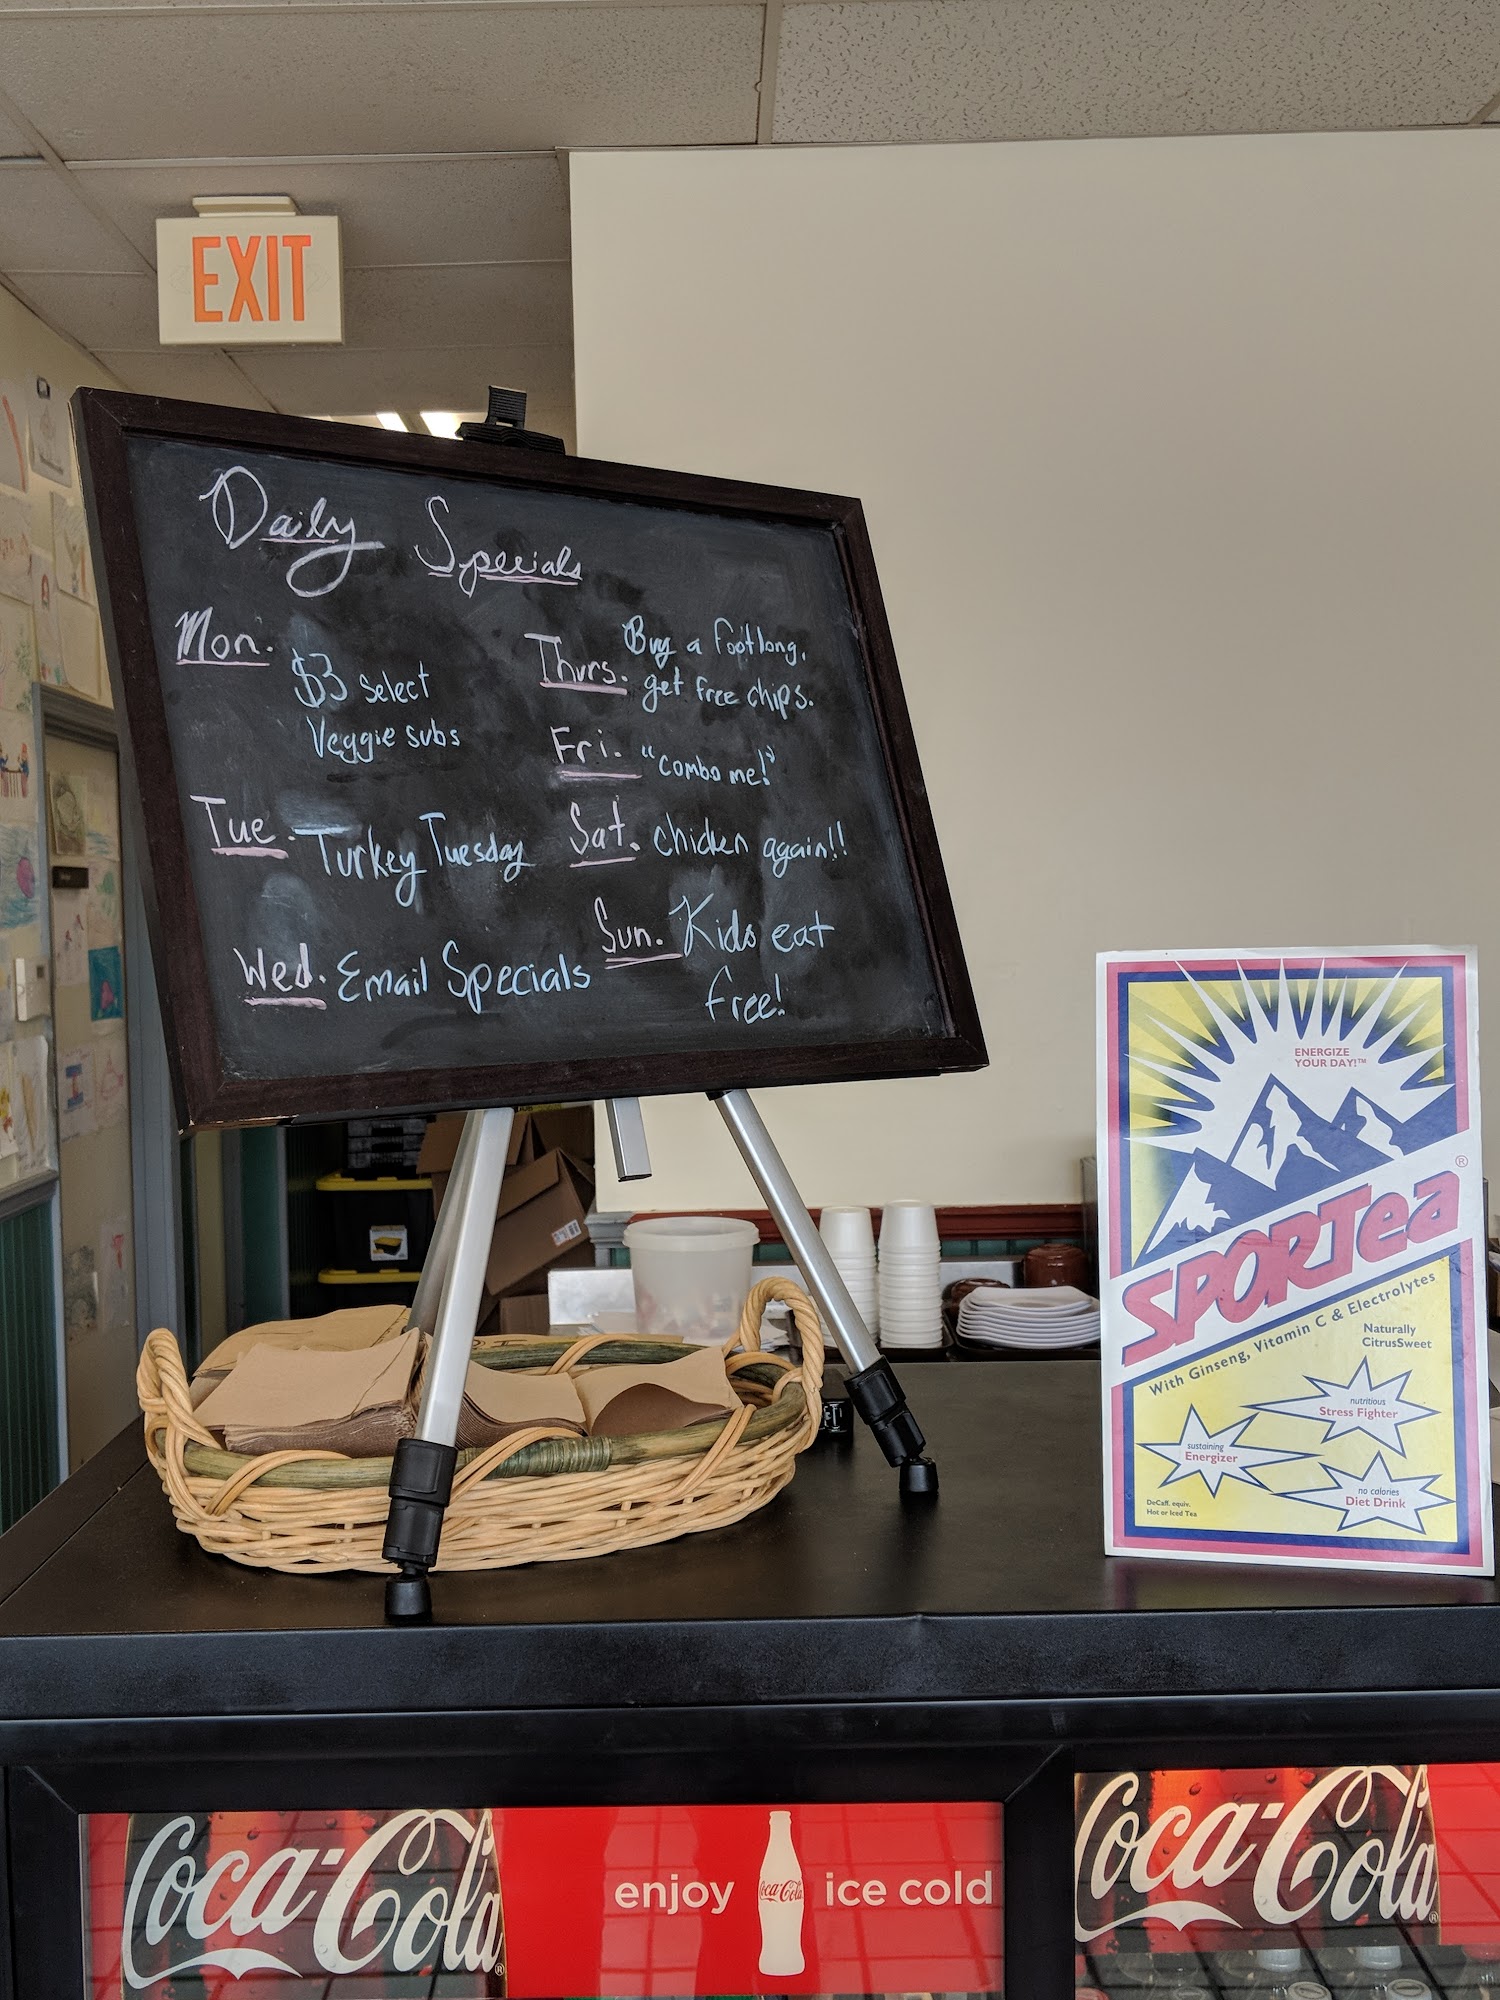 EXIT
Daily Specials
Mon.
$3 select
Veggie subs
Tue. Turkey Tuesday
Wed. Email Specials
Thurs. Buy a footlong,
get free chips.
Fri. "combo me!"
Sat. chicken again!!
Sun. Kids eat
free!
ENERGIZE
YOUR DAY!™
SPORTea®
With Ginseng, Vitamin C & Electrolytes
Naturally
CitrusSweet
nutritious
Stress Fighter
sustaining
Energizer
no calories
Diet Drink
DeCaff. equiv.
Hot or Iced Tea
Coca-Cola®
enjoy Coca-Cola ice cold
Coca-Cola®